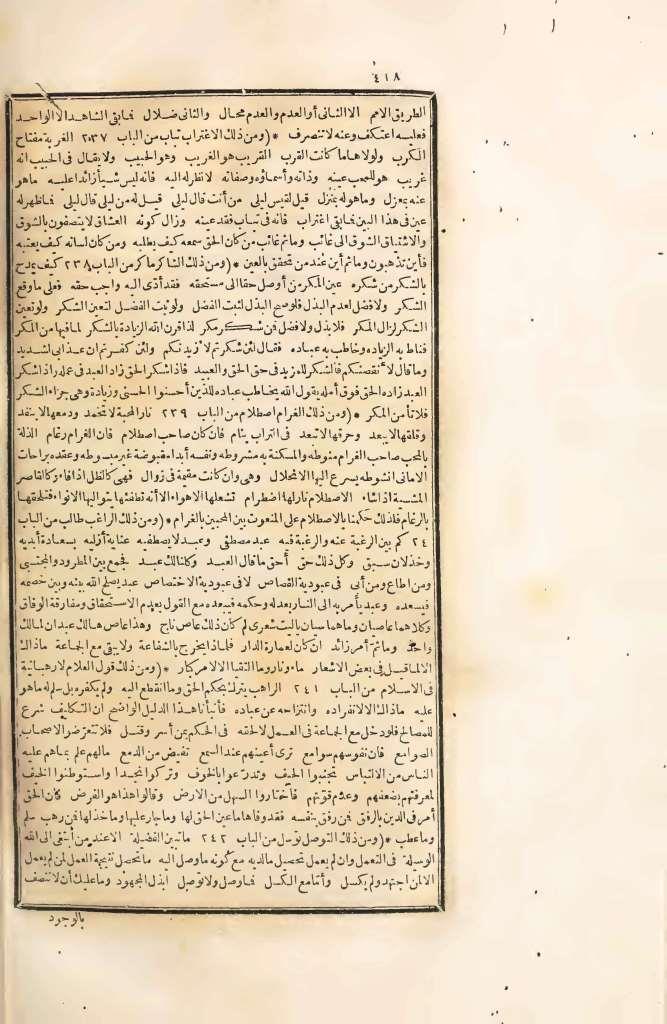 ٤١٨
الطريق الامم الا الثانى أو العدم والعدم محال والثانى ضلال فابقى الشاهد الا الواحد
فعليه اعتكف وعنه لا تنصرف *(ومن ذلك الاغتراب تباب من الباب ٢٠٣٧ الغربة مفتاح
الكرب ولولاها ما كانت القرب القريب هو الغريب وهو الحبيب ولا يقال فى الحبيب انه
غريب هو للمحب عينه وذاته وأسماؤه وصفاته لا نظر له اليه فانه ليس شيأ زائدا عليه ما هو
عنه بمعزل وما هو له بمنزل قيل لقيس ليلى من أنت قال ليلى قيل له من ليلى قال ليلى فاظهر له
عين فى هذا البين فابقى اغتراب فانه فى تباب فقد عينه وزال كونه العشاق لا يتصفون بالشوق
والاشتياق الشوق الى غائب وما ثم غائب من كان الحق سمعه كيف يطلبه ومن كان لسانه كيف يعتبه
فأين تذهبون وما ثم أين عند من تحقق بالعين *(ومن ذلك الشاكر ماكر من الباب ٢٣٨ كيف يمدح
بالشكر من شكره عين المكر من أوصل حقا الى مستحقه فقد أدّى اليه واجب حقه فعلى ما وقع
الشكر ولا فضل لعدم البذل فلو صح البذل لثبت الفضل ولو ثبت الفضل لتعين الشكر ولو تعين
الشكر لزال المكر فلا بذل ولا فضل فمن شكر مكر لذا قرن الله الزيادة بالشكر لما فيها من المكر
فناط به الزياده وخاطب به عباده فقال لئن شكرتم لأزيدنكم ولئن كفرتم ان عذابى لشديد
وما قال لأنقصنكم فالشكر للمزيد فى حق الحق والعبيد فاذا شكر الحق زاد العبد فى عمله واذا شكر
العبد زاده الحق فوق أمله يقول الله يخاطب عباده للذين أحسنوا الحسنى وزيادة وهى جزاء الشكر
فلا تأمن المكر *(ومن ذلك الغرام اصطلام من الباب ٢٣٩ نار المحبة لا تخمد ودمعها لا ينفد
وقلقها لا يبعد وحرقها لا تبعد فى التراب ينام فان كان صاحب اصطلام فان الغرام رغام الذلة
بالمحب صاحب الغرام منوطه والمسكنة به مشروطه ونفسه أبدا مقبوضة غير مبسوطه وعقده براحات
الامانى انشوطه يسرع اليها الانحلال وهى وان كانت مقيمة فى زوال فهى كالظل اذا فاء وكالقاصر
المشيئة اذا شاء الاصطلام نار لها اضطرام تشعلها الاهواء الا أنه تطفئها بتواليها الانواء فتلحقها
بالرغام فلذلك حكمنا بالاصطلام على المنعوت بين المحبين بالغرام *(ومن ذلك الراغب طالب من الباب
٢٤ كم بين الرغبة عنه والرغبة فيه عبد مصطفى وعبد لا يصطفيه عناية أزليه بسعادة أبديه
وخذلان سبق وكل ذلك حق أحق ما قال العبد وكلنا لك عبد فجمع بين المطرود والمجتبى
ومن أطاع ومن أبى فى عبودية القصاص لا فى عبودية الاختصاص عبد يصلح الله بينه وبين خصمه
فيسعده وعبد يأمر به الى النار بعدله وحكمه فيبعده مع القول بعدم الاستحقاق ومفارقة الوفاق
وكلاهما عاصيان وما هما سيان ياليت شعرى لم كان ذلك عاص ناج وهذا عاص هالك عبدان لمالك
واحد وما ثم أمر زائد ان كان لعمارة الدار فلماذا يخرج بالشفاعة ولا يبقى مع الجماعة ما ذاك
الا لما قيل فى بعض الاشعار ماء ونار وما التقيا الا لامر كبار *(ومن ذلك قول العلام لا رهبانية
فى الاسلام من الباب ٢٤١ الراهب يترك بحكم الحق وما انقطع اليه ولم يكفره بل سلم له ما هو
عليه ما ذاك الا لانفراده وانتزاحه عن عباده فأنبأنا هذا الدليل الواضح ان التكليف شرع
للمصالح فلو دخل مع الجماعة فى العمل لالحقه فى الحكم بمن أسر وقتل فلا تتعرضوا لاصحاب
الصوامع فان نفوسهم سوامع ترى أعينهم عند السمع تفيض من الدمع مالهم علم بما هم عليه
الناس من الالتباس تجنبوا الحيف وتدرعوا بالخوف وتركوا نجدا واستوطنوا الخيف
لمعرفتهم بضعفهم وعدم قوتهم فاختاروا السهل من الارض وقالوا هذا هو الفرض لان الحق
أمر فى الدين بالرفق فمن رفق بنفسه فقد وفاها ما عين الحق لها وما جار عليها وما خذلها فمن رهب سلم
وما عطب *(ومن ذلك التوصل توسل من الباب ٢٤٢ ما تبين الفضيلة الا عند من أتقى الى الله
الوسيلة فى التعمل وان لم يعمل تحصيل ما لديه مع كونه ما وصل اليه ما تحصل نتيجة العمل لمن لم يعمل
الا لمن اجتهد ولم يكسل وأما مع الكسل فما وصل ولا توصل ابذل المجهود وما عليك أن لا تتصف
بالوجود